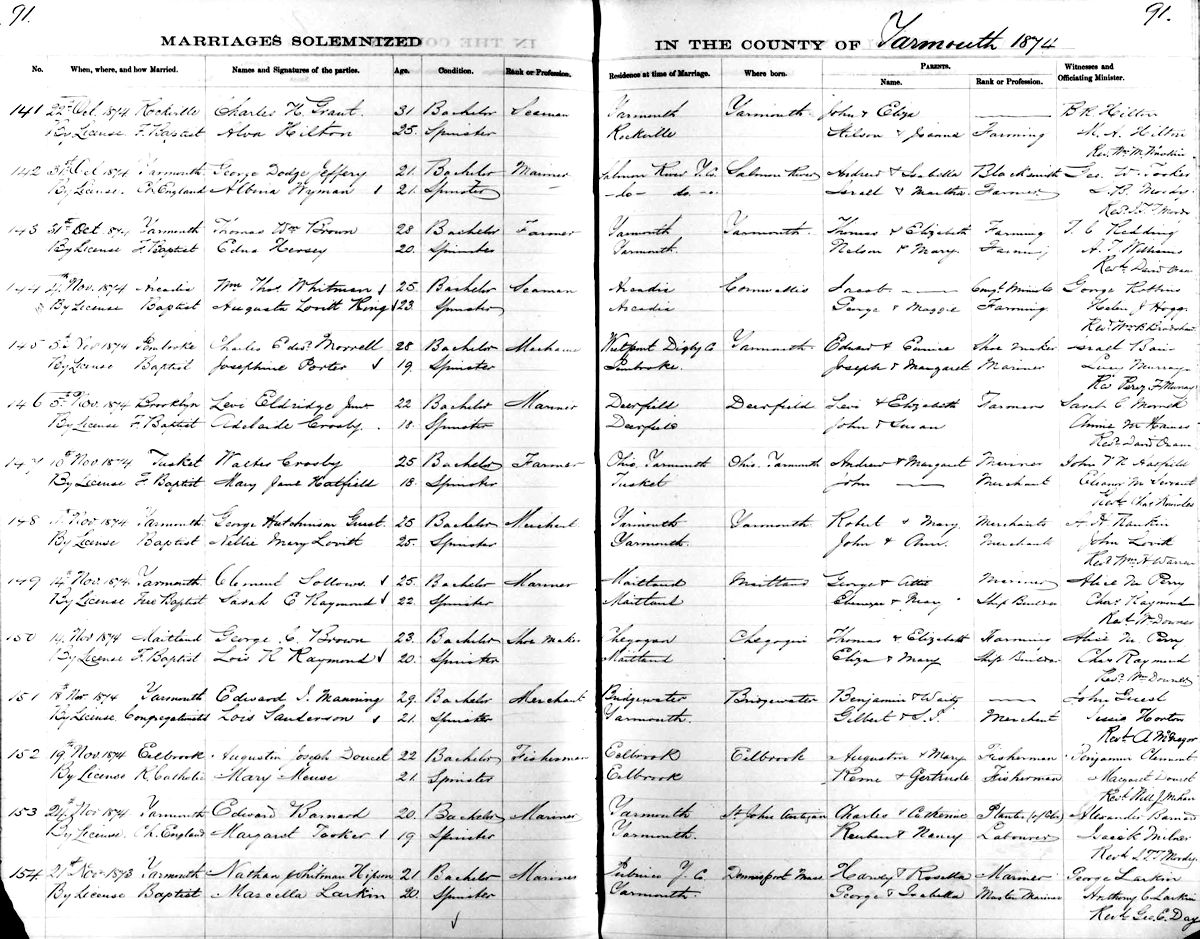 91.
91.
MARRIAGES SOLEMNIZED IN THE COUNTY OF Yarmouth 1874
No. When, where, and how Married. Names and Signatures of the parties. Age. Condition. Rank or Profession. Residence at time of Marriage. Where born. PARENTS. Name. Rank or Profession. Witnesses and Officiating Minister.
141 22nd Oct. 1874 Rockville Charles H. Grant 31 Bachelor Seaman Yarmouth Yarmouth John & Eliza B R Hilton
By License F. Baptist Alva Hilton 25 Spinster Rockville & Joanna Farming M. A. Hilton
Rev. Wm M.
142 Oct 1874 Yarmouth George Dodge Jeffery 21 Bachelor Mariner Salmon River Y. Co. Salmon River Andrew & Isabella Blacksmith W. Tooker
By License Ch England Albena Wyman 21 Spinster do do Israel & Martha Farmer
Rev. J. T. Moody
143 31st Oct. 1874 Yarmouth Thomas Wm Brown 28 Bachelor Farmer Yarmouth Yarmouth Thomas & Elizabeth Farming T. C Redding
By License F. Baptist Edna Hersey 20 Spinster Yarmouth Nelson & Mary Farming A. T. Williams
Revd. David Oram
144 Nov. 1874 Arcadia Wm Thos. Whitman 25 Bachelor Seaman Arcadia Cornwallis Jacob George Robbins
By License Baptist Augusta Lovitt King 23 Spinster Arcadia George & Maggie Farming Helen J
Rev. Wm
145 5th Nov 1874 Pembroke Charles Edwd. Morrell 28 Bachelor Mechanic Westport Digby Co Yarmouth Edward & Eunice Shoe Maker Israel Bain
By License Baptist Josephine Porter 19 Spinster Pembroke Joseph & Margaret Mariner Murray
Rev Perez F Murray
146 5th Nov. 1874 Brooklyn Levi Eldridge Junr 22 Bachelor Mariner Deerfield Deerfield Levi & Elizabeth Farmers Sarah C
By License F. Baptist Adelaide Crosby 18 Spinster Deerfield John & Susan Annie M Haines
Revd. David Oram
147 10th Nov 1874 Tusket Walter Crosby 25 Bachelor Farmer Ohio, Yarmouth Ohio, Yarmouth Andrew & Margaret John V N Hatfield
By License F. Baptist Mary Jane Hatfield 18 Spinster Tusket John Merchant Eleanor M Servant
Revd. Chas Knowles
148 Nov 1874 Yarmouth George Hutchinson Guest 25 Bachelor Merchant Yarmouth Yarmouth Robert & Mary Merchants
By License Baptist Nellie Mary Lovitt 25 Spinster Yarmouth John & Ann Merchant John Lovitt
Revd. Wm H Warren
149 14th Nov 1874 Yarmouth Clement Sollows 25 Bachelor Mariner Maitland Maitland George & Mariner Alice M Perry
By License Free Baptist Sarah E Raymond 22 Spinster Maitland Ebenezer & Mary Ship Builder Chas. Raymond
Revd. W Downes
150 14 Nov 1874 Maitland George C. Brown 23 Bachelor Shoe Maker Chegogan Chegogin Thomas & Elizabeth Farming Alice M. Perry
By License F. Baptist Lois H Raymond 20 Spinster Maitland Eliza & Mary Ship Builder Chas Raymond
Revd. Wm Downes
151 18th Nov 1874 Yarmouth Edward J. Manning 29 Bachelor Merchant Bridgewater Bridgewater Benjamin & Waity John Guest
By License Congregationalist Lois Sanderson 21 Spinster Yarmouth Gilbert & S. J. Merchant Jessie Horton
Revd. A McGregor
152 19th Nov 1874 Eelbrook Augustin Joseph Doucet 22 Bachelor Fisherman Eelbrook Eelbrook Augustin & Mary Fisherman Benjamin Clement
By License R. Catholic Mary Meuse 21 Spinster Eelbrook & Gertrude Fisherman Margaret Doucet
Revd.
153 Nov 1874 Yarmouth Edward Barnard 20 Bachelor Mariner Yarmouth St John Charles & Catherine Alexander Barnard
By License Ch. England Margaret Tooker 19 Spinster Yarmouth Reuben & Nancy Labourer Jacob
Revd. J T T Moody
154 21st Nov 1873 Yarmouth Nathan Hipson 21 Bachelor Mariner Pubnico Y. C. Mass Harvey & Rosella Mariner George Larkin
By License Baptist Marcella Larkin 20 Spinster Yarmouth George & Isabella Master Mariner Anthony C Larkin
Revd. Geo. E. Day